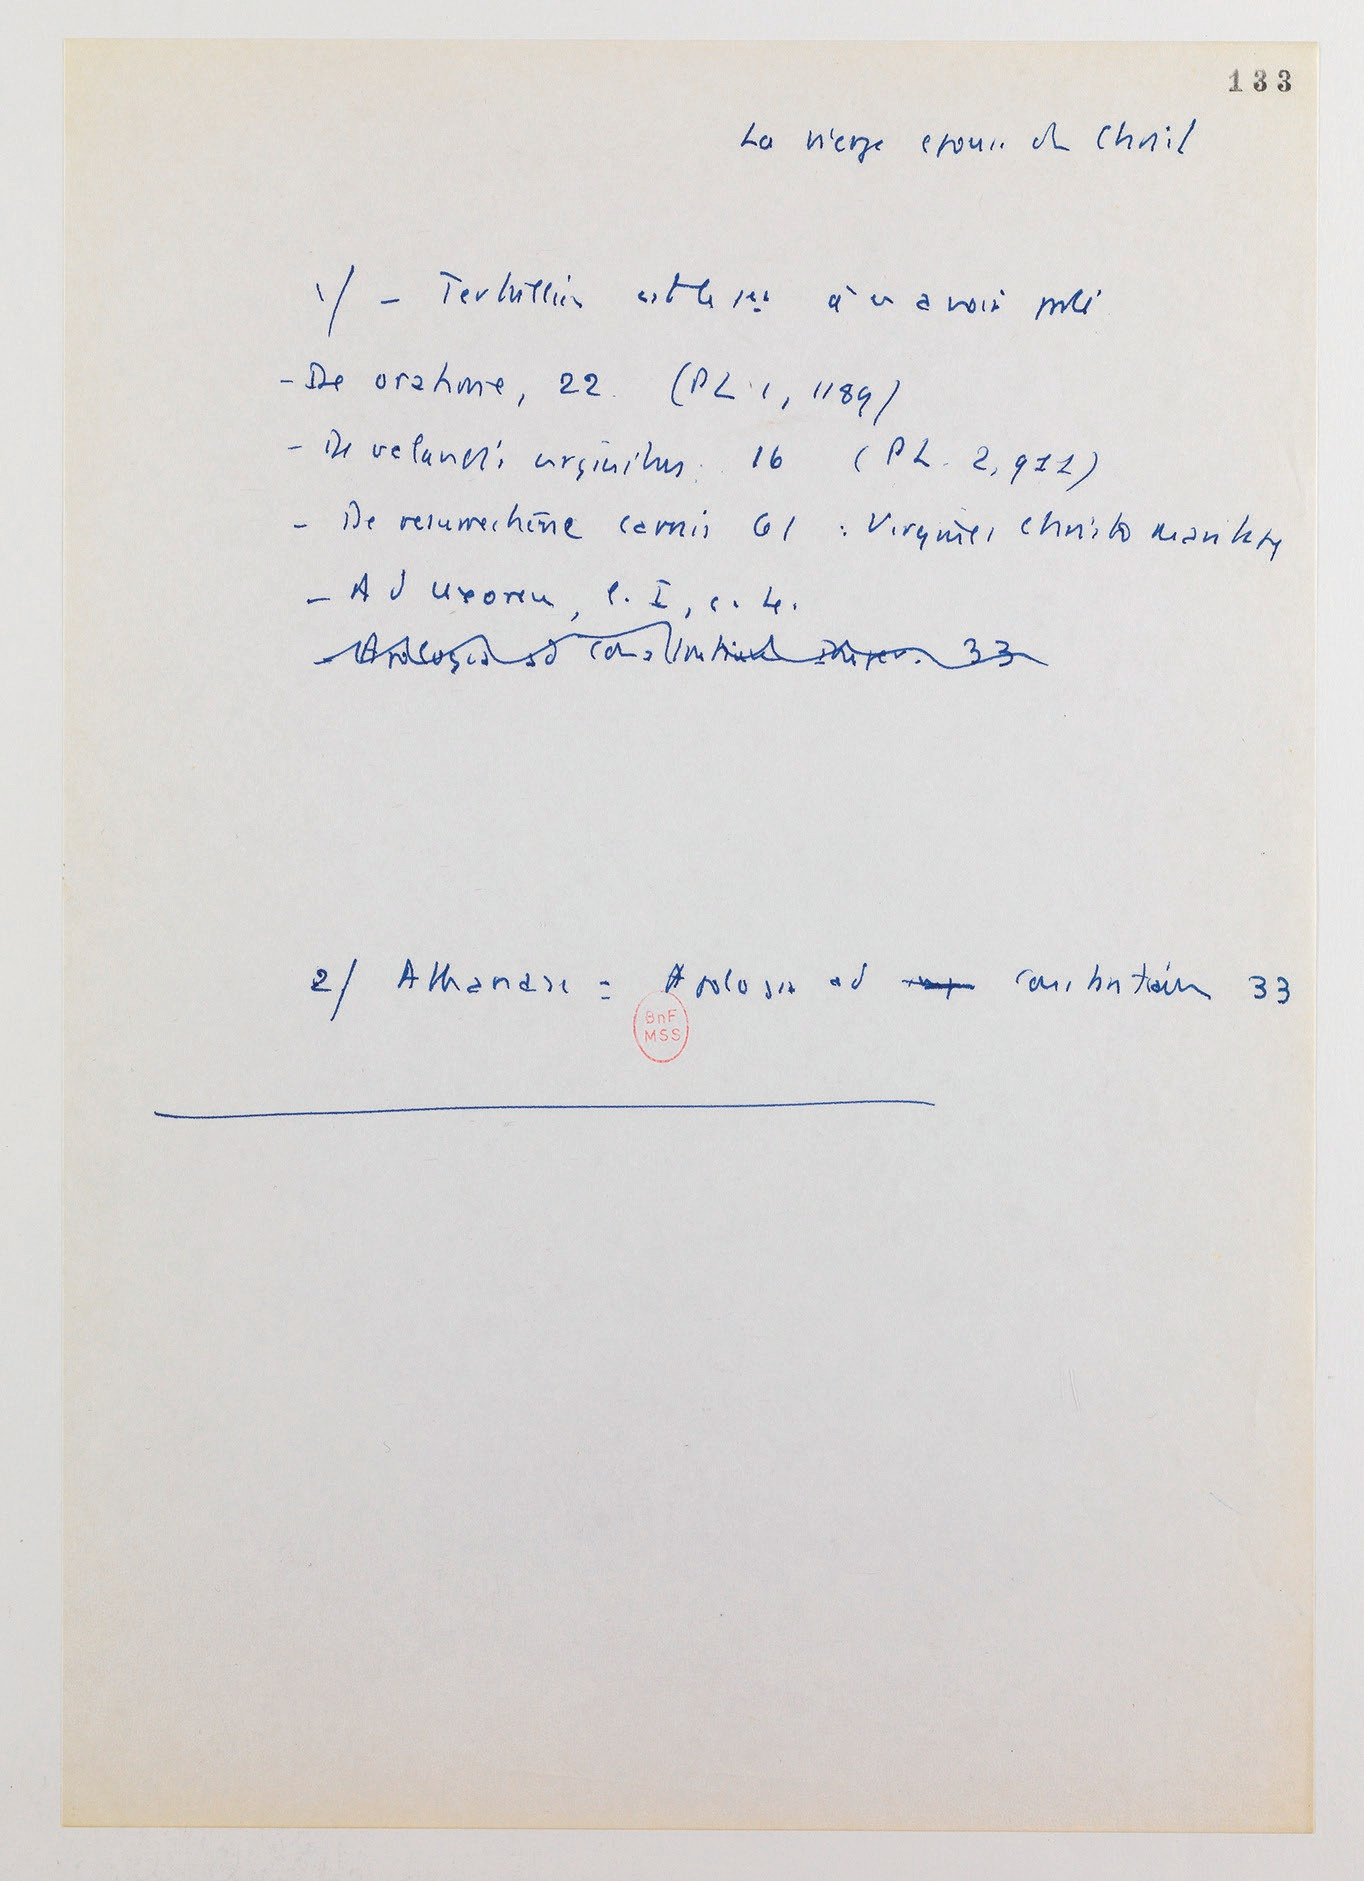 133
La vierge épouse du Christ
1/ – Tertullien est le 1er à en avoir parlé
– De oratione, 22. (PL 1, 1189)
– De velandis virginibus. 16 (PL. 2, 911)
– De resurrectione carnis 61 : Virgines Christo maritae
– Ad uxorem, l. I, c. 4.
– Apologia ad Constantium Imper. 33
2/ Athanase = Apologia ad Constantium 33
BnF
MSS